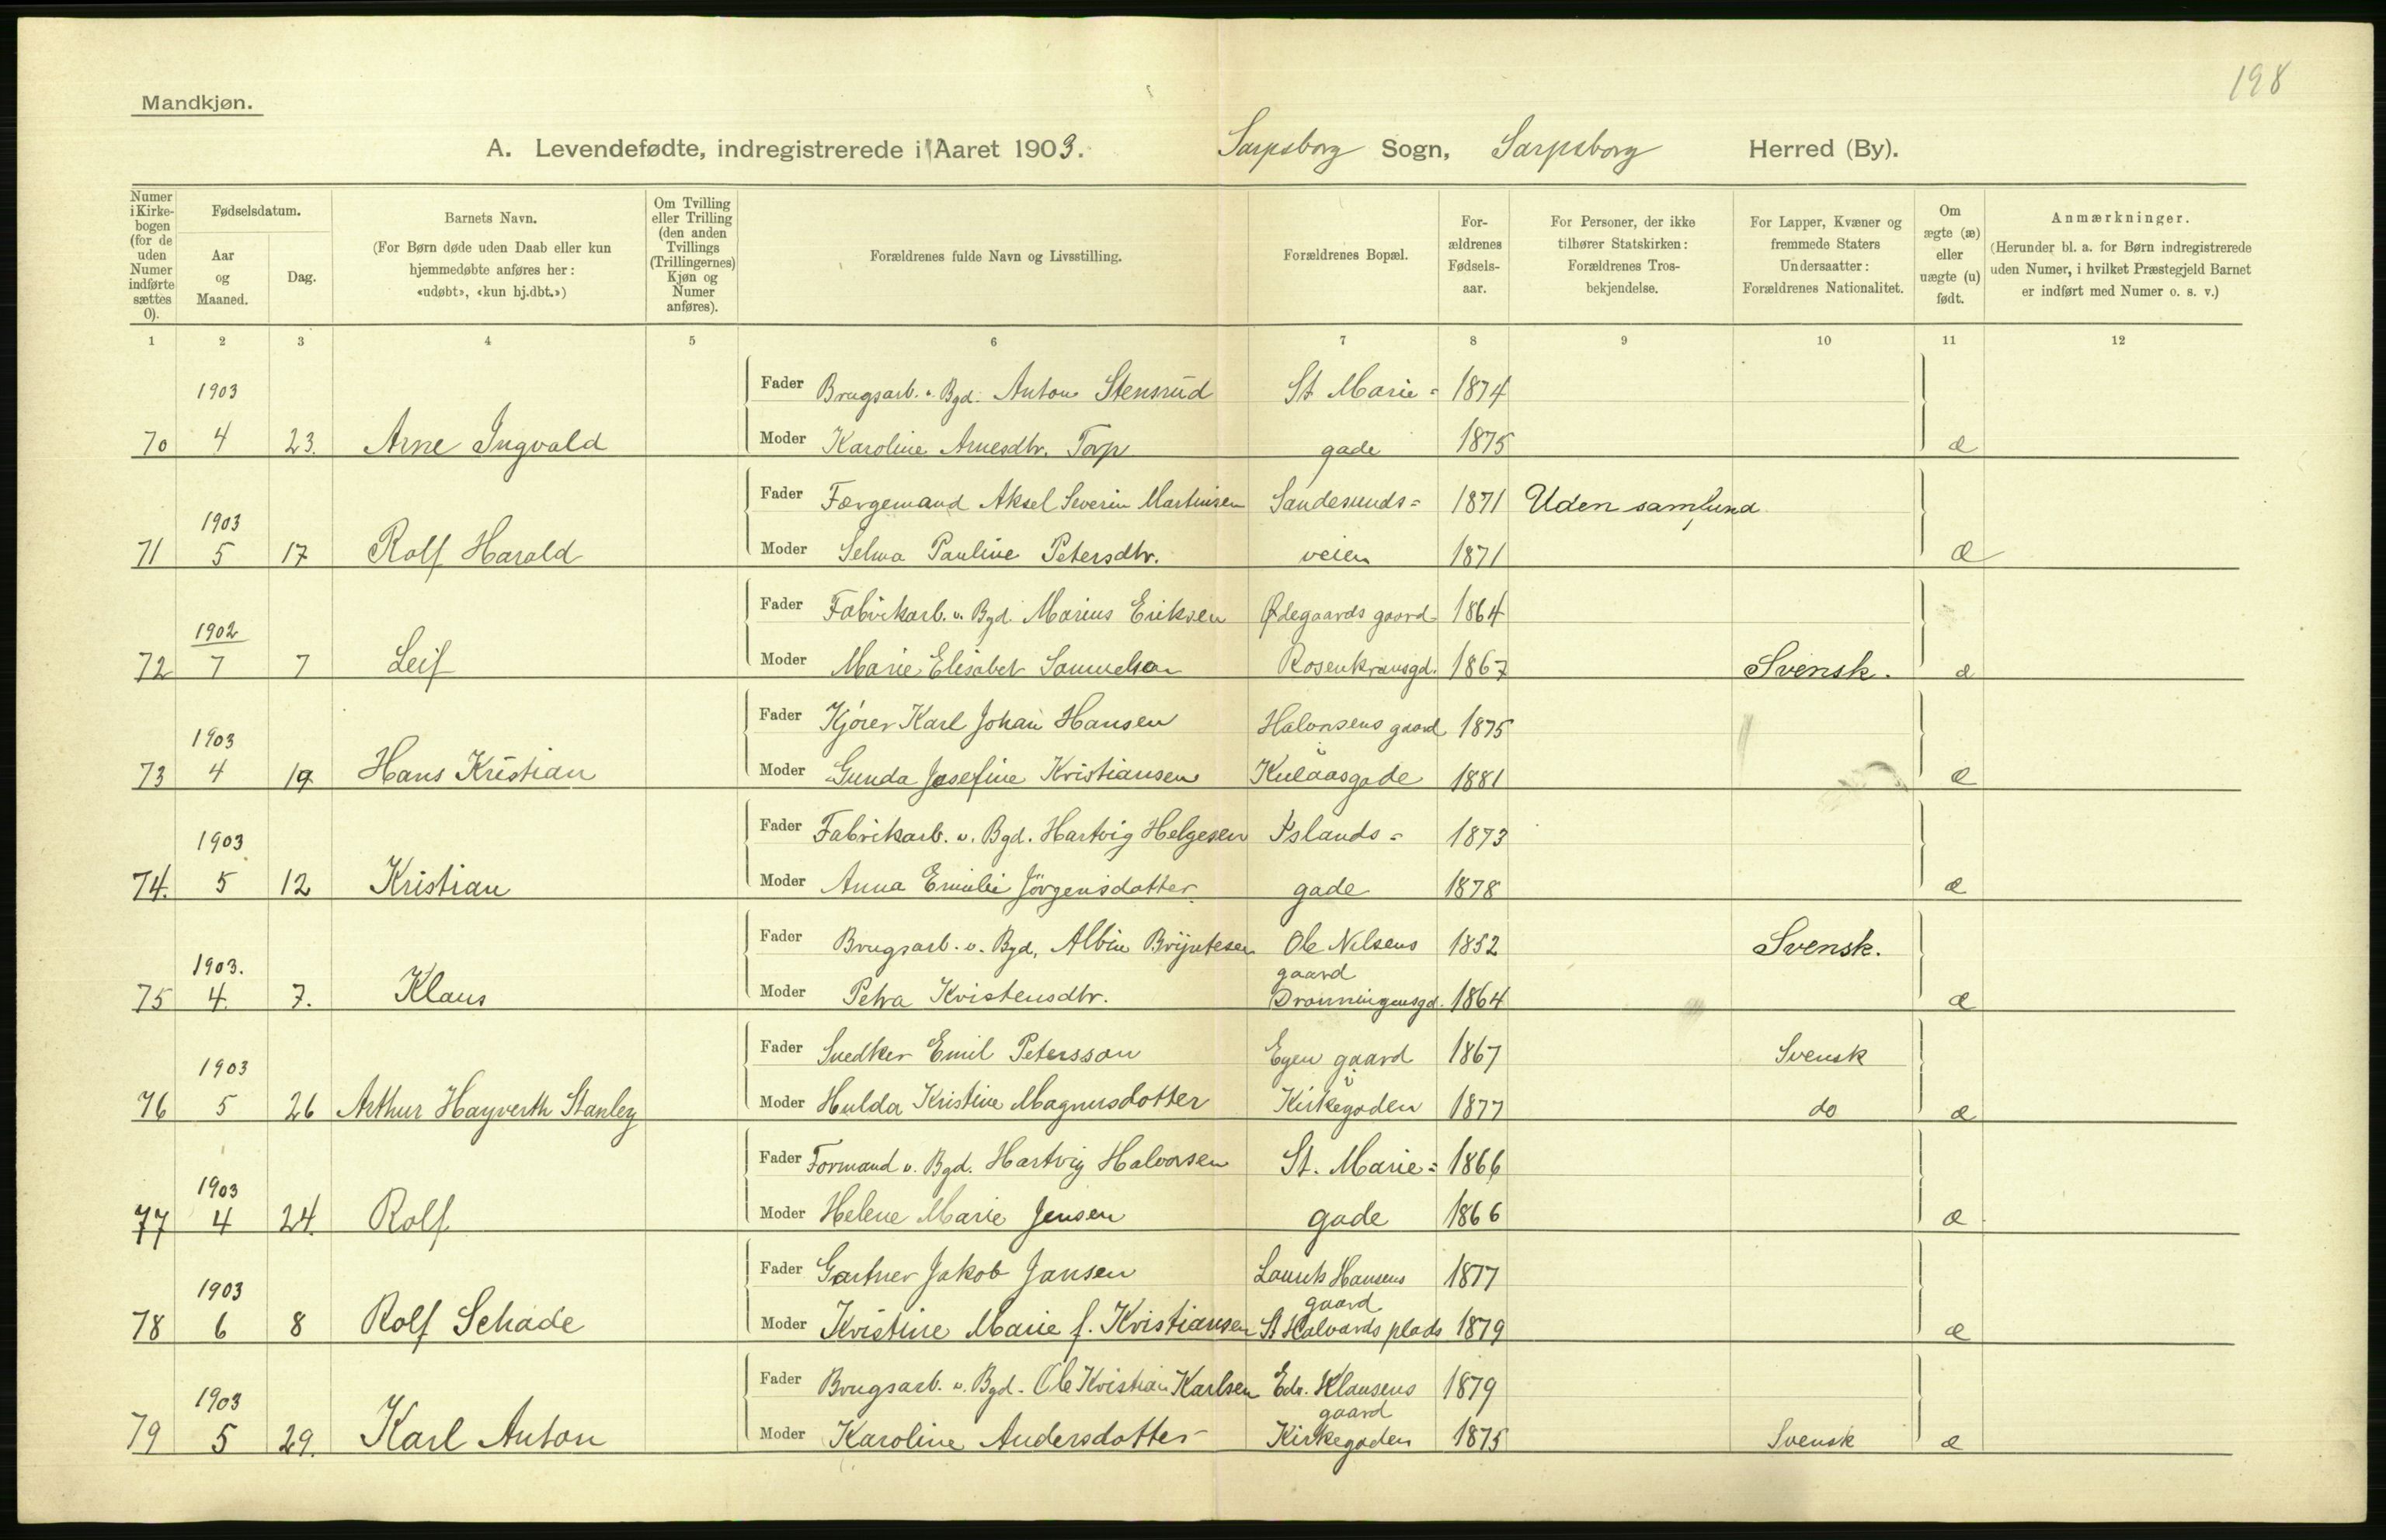 198
Mandkjøn.
A. Levendefødte, indregistrerede i Aaret 1903. Sarpsborg Sogn, Sarpsborg Herred (By).
Numer i Kirke-bogen (for de uden Numer indførte sættes 0).
Fødselsdatum.
Aar og Maaned.
Dag.
Barnets Navn.
(For Børn døde uden Daab eller kun hjemmedøbte anføres her: «udøbt», «kun hj.dbt.»)
Om Tvilling eller Trilling (den anden Tvillings (Trillingernes) Kjøn og Numer anføres).
Forældrenes fulde Navn og Livsstilling.
Forældrenes Bopæl.
For-ældrenes Fødsels-aar.
For Personer, der ikke tilhører Statskirken: Forældrenes Tros-bekjendelse.
For Lapper, Kvæner og fremmede Staters Undersaatter: Forældrenes Nationalitet.
Om ægte (æ) eller uægte (u) født.
Anmærkninger.
(Herunder bl. a. for Børn indregistrerede uden Numer, i hvilket Præstegjeld Barnet er indført med Numer o. s. v.)
1 2 3 4 5 6 7 8 9 10 11 12
1903 Fader Brugsarb. v. Bgd. Anton Stensrud St Marie= 1874
70 4 23. Arne Ingvald Moder Karoline Arnesdtr. Torp gade 1875 æ
1903 Fader Færgemand Aksel Severin Martinsen Sandesunds= 1871 Uden samfund
71 5 17 Rolf Harald Moder Selma Pauline Petersdtr. veien 1871 æ
1902 Fader Fabrikarb. v. Bgd. Marius Eriksen Ødegaards gaard 1864
72 7 7 Leif Moder Marie Elisabet Samuelson Rosenkransgd. 1867 Svensk. æ
1903 Fader Kjører Karl Johan Hansen Halvorsens gaard 1875
i
73 4 19 Hans Kristian Moder Gunda Josefine Kristiansen Kulaasgade 1881 æ
1903 Fader Fabrikarb. v. Bgd. Hartvig Helgesen Islands= 1873
74. 5 12 Kristian Moder Anna Emilie Jörgensdotter gade 1878 æ
1903. Fader Brugsarb. v. Bgd. Albin Brijntesen Ole Nilsens 1852 Svensk.
gaard
75 4. 7. Klaus Moder Petra Kristensdtr. Dronningensgd. 1864 æ
1903 Fader Snedker Emil Petersson Egen gaard 1867 Svensk
i
76 5 26 Arthur Hayverth Stanley Moder Hulda Kristine Magnusdotter Kirkegaden 1877 do æ
1903 Fader Formand v. Bgd. Hartvig Halvorsen St. Marie= 1866
77 4 24. Rolf Moder Helene Marie Jensen gade 1866 æ
1903 Fader Gartner Jakob Jansen Laurits Hansens 1877
gaard
78 6 8 Rolf Schade Moder Kristine Marie f. Kristiansen St Halvards plads 1879 æ
1903 Fader Brugsarb. v. Bgd. Ole Kristian Karlsen Edv. Klausens 1879
gaard
79 5 29. Karl Anton Moder Karoline Andersdotter Kirkegaden 1875 Svensk æ